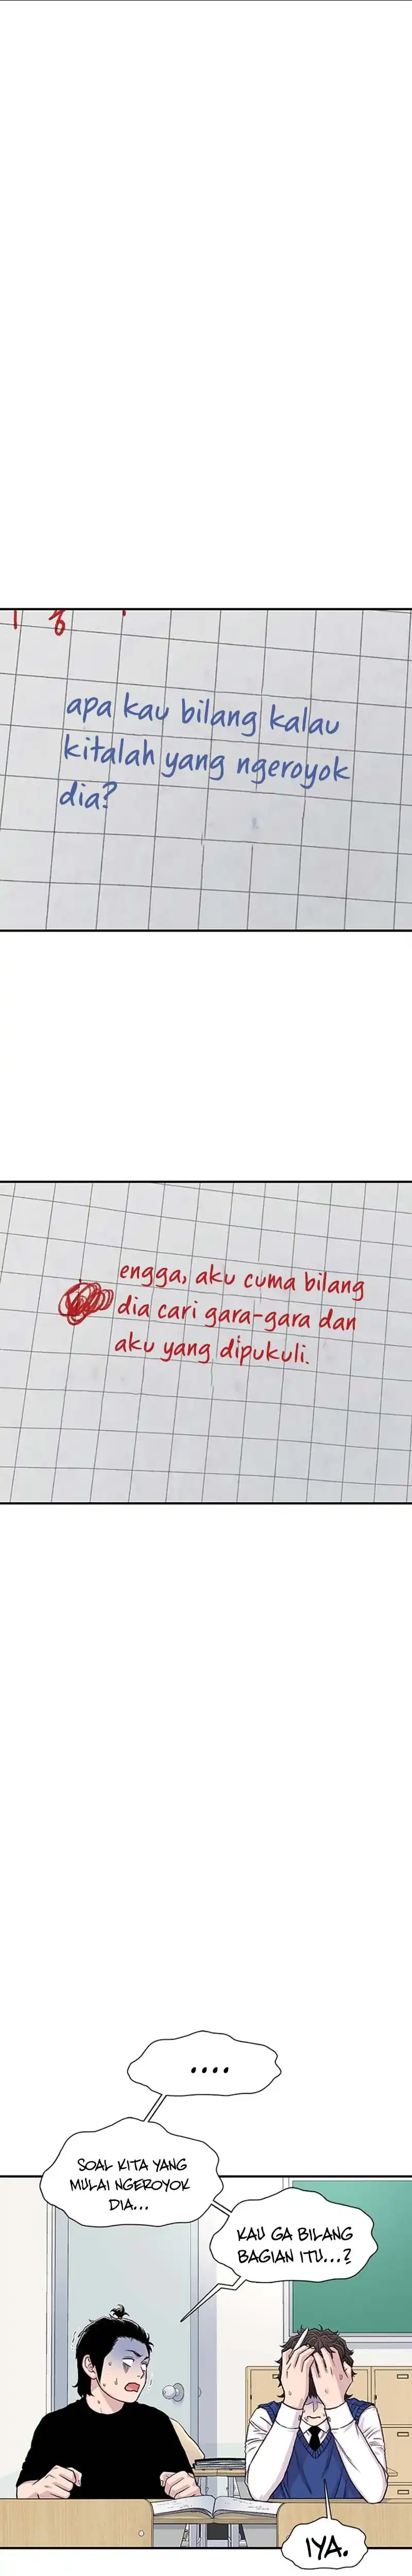 apa kau bilang kalau
kitalah yang ngeroyok
dia?
engga, aku cuma bilang
dia cari gara-gara dan
aku yang dipukuli.
....
SOAL KITA YANG
MULAI NGEROYOK
DIA...
KAU GA BILANG
BAGIAN ITU...?
IYA.